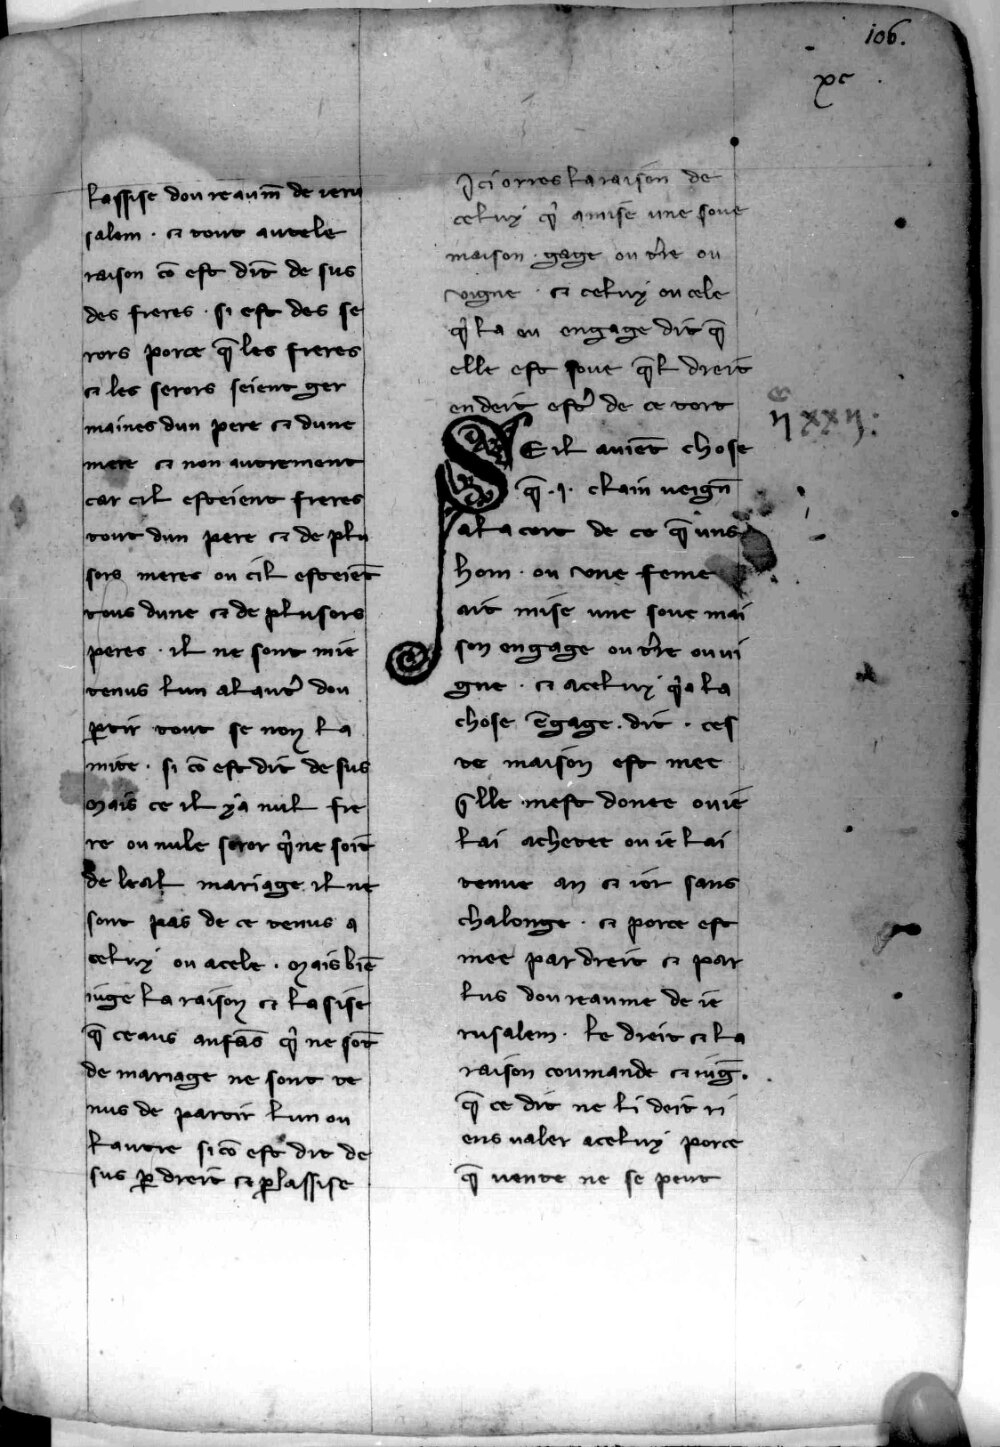 106.
xc
lassise dou reaum̄ de ieru
salem · ⁊ tout autele
raison cō est dit de sus
des freres · si est des se
rors porce q̄ les freres
⁊ les serors seient ger
maines dun pere ⁊ dune
mere ⁊ non autrement
car cil esteient freres
tout dun pere ⁊ de plu
sors meres ou cil esteiēt
tous dune ⁊ de plusors
peres · il ne sont mie
tenus lun a lautˀ dou
ꝑtir tout se non la
mite · si cō est dit de sus
Mais ce il ya nul fre
re ou nule seror qͥ ne soiēt
de leal mariage il ne
sont pas de ce tenus a
celuy ou a cele · Mais biē
iuge la raison ⁊ lasise
q̄ ceaus anfās qͥ ne sōt
de mariage ne sont te
nus de partir lun ou
lautre si cō est dit de
sus ꝑ dreit ⁊ ꝑ lassise
Ici orres la raison de
celuy qͥ a mise une soue
maison · gage ou tˀre ou
vigne · ⁊ celuy ou cele
qͥ la en engage dit q̄
elle est soue q̄l dreit
en deit estˀ de ce tort
SE il auiēt chose
q̄ · i · clain ueign̄
a la cort de ce q̄ uns
hom · ou une feme
ait mise une soue mai
son en gage ou tˀre ou ui
gne · ⁊ a celuy qͥ a la
chose ēgage · dit · ces
te maison est mee
q̄lle mest donee ou ie
lai achetee ou ie lai
tenue an ⁊ ior sans
chalonge · ⁊ porce est
mee par dreit ⁊ par
lus dou reaume de ie
rusalem · le dreit ⁊ la
raison coumande ⁊ iuḡ ·
q̄ ce dit ne li deit ri
ens ualer a celuy porce
q̄ uente ne se peut